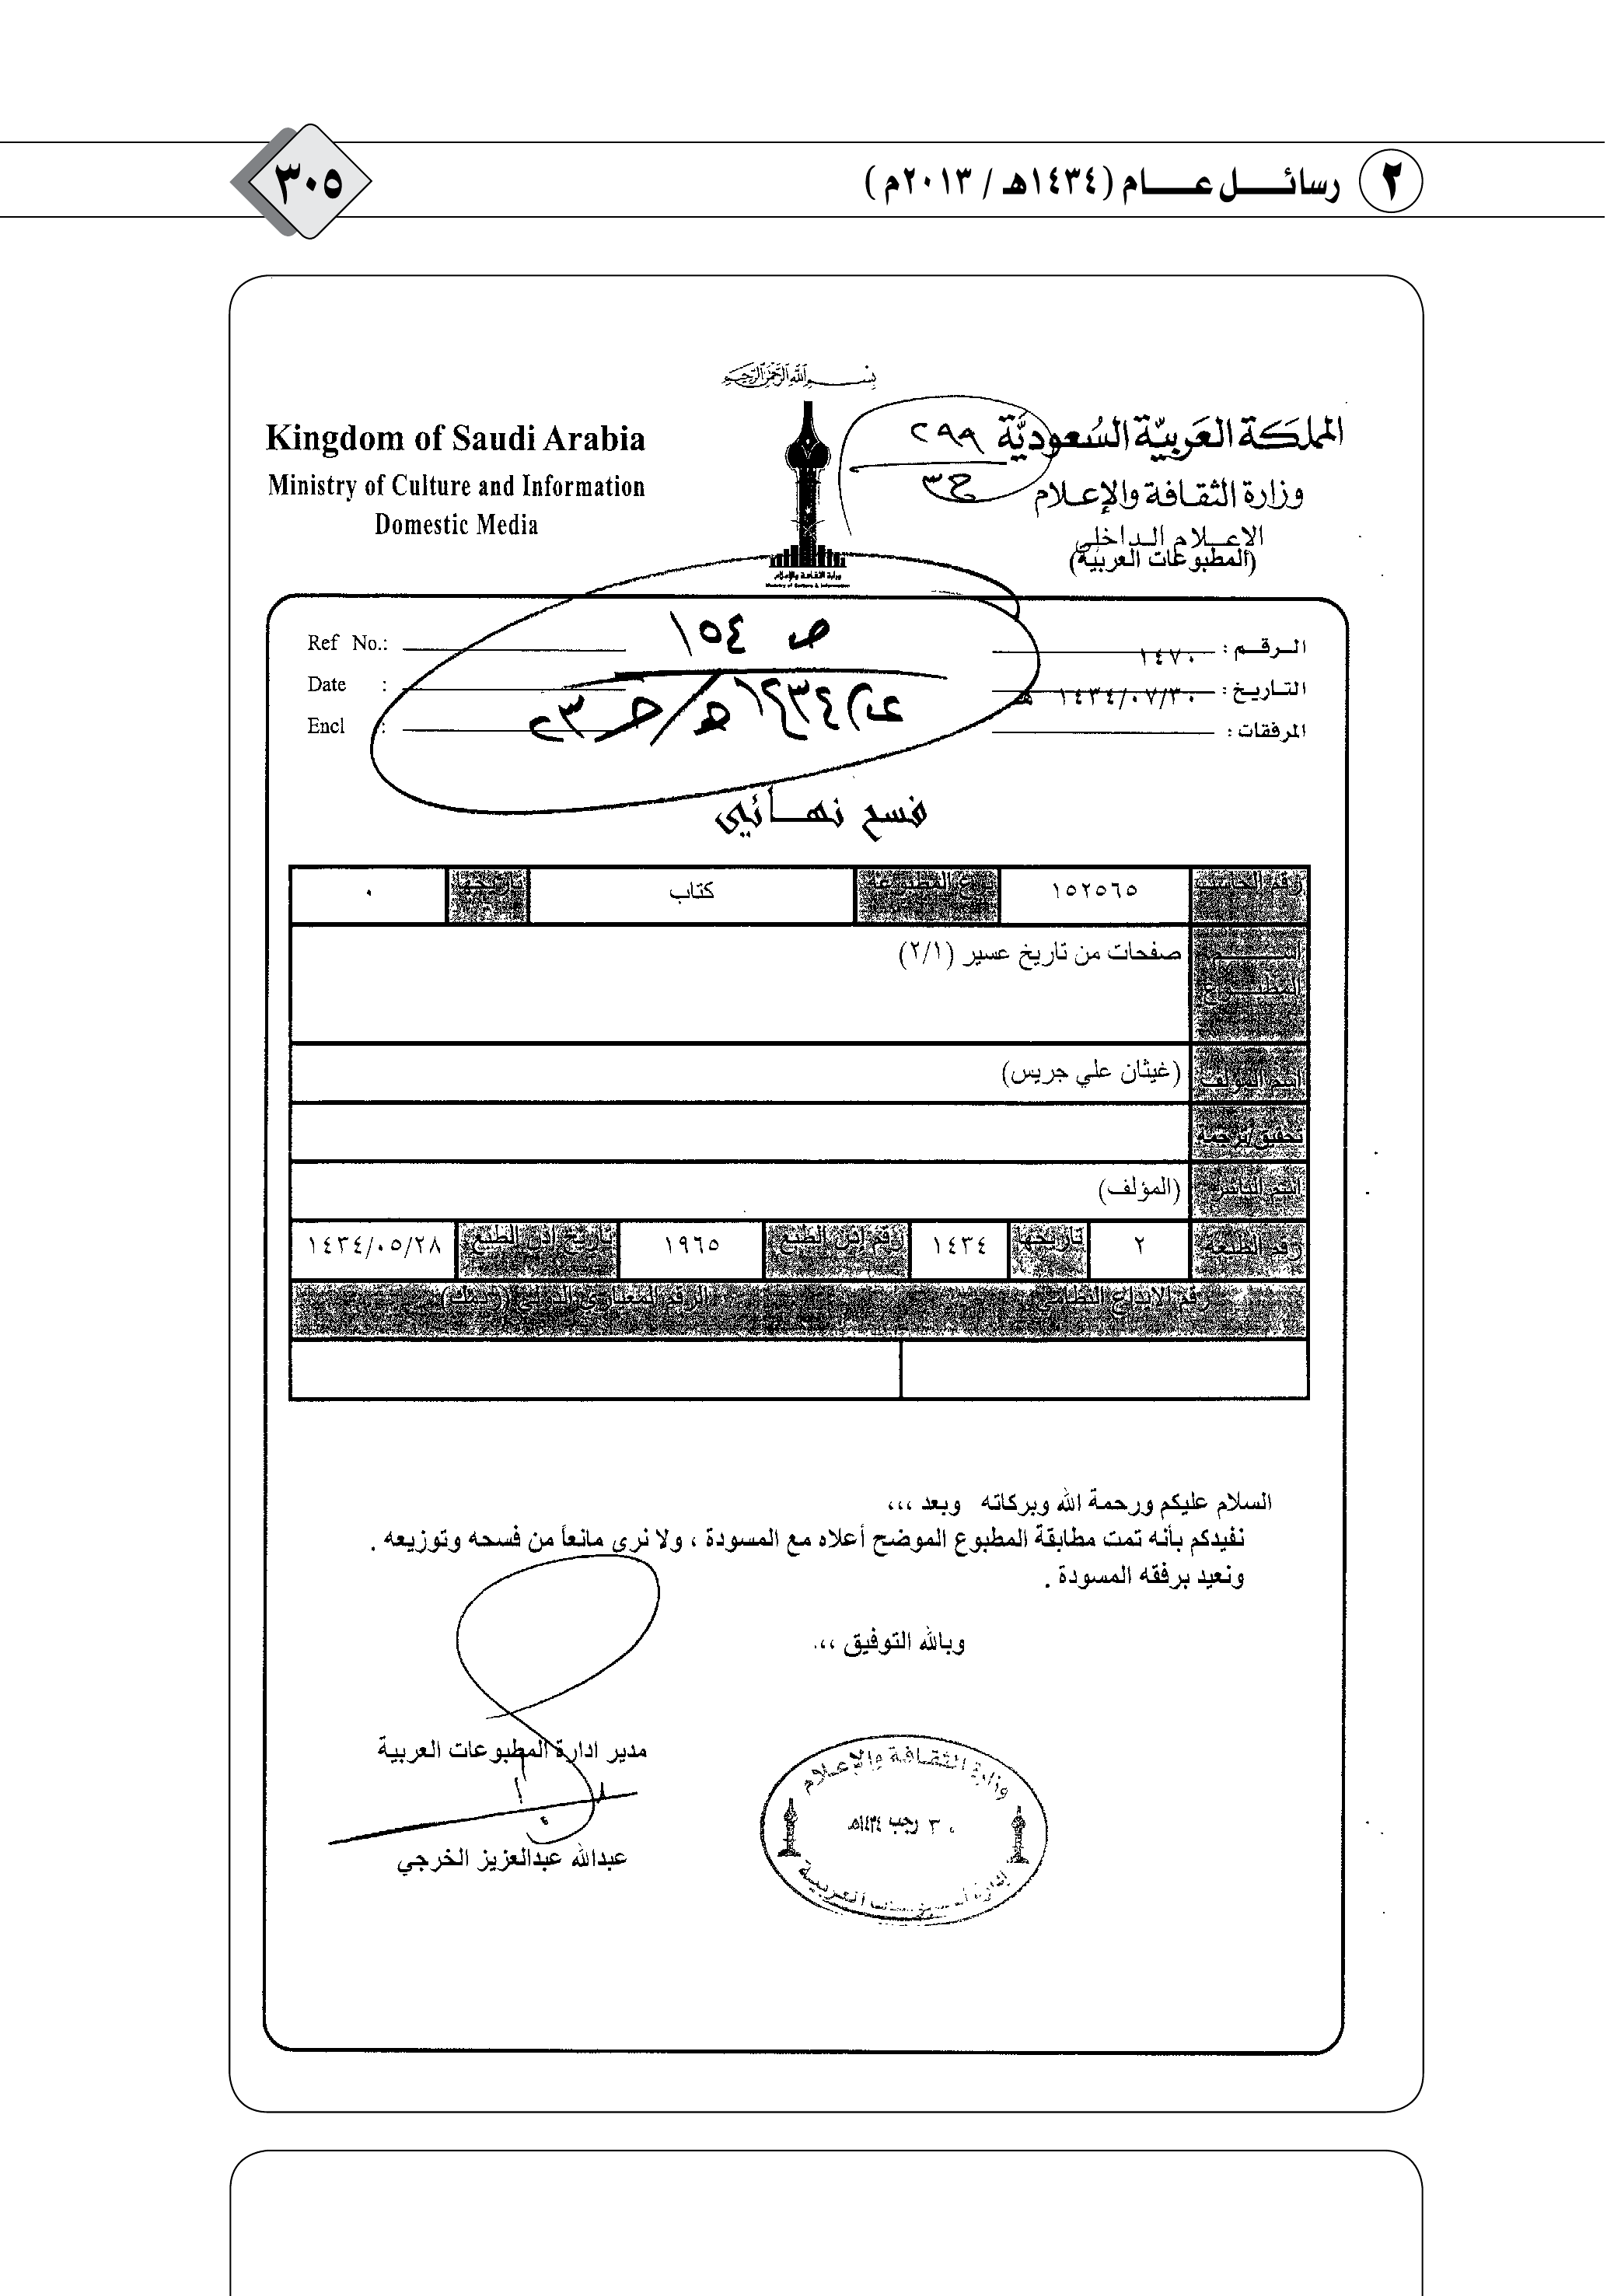 ٢ رسائل عام (١٤٣٤هـ / ٢٠١٣م)
٣٠٥
بسم الله الرحمن الرحيم
المملكة العربية السعودية
وزارة الثقافة والإعلام
الإعلام الداخلي
(المطبوعات العربية)
Kingdom of Saudi Arabia
Ministry of Culture and Information
Domestic Media
٢٩٩
ح٣
وزارة الثقافة والإعلام
Ministry of Culture & Information
الرقم : ١٤٧٠
التاريخ : ١٤٣٤/٠٧/٣٠ هـ
المرفقات :
Ref No.:
Date :
Encl :
ص ١٥٤
فسح نهائي
رقم الحاسب ١٥٢٥٦٥ نوع المطبوعة كتاب تاريخها ٠
اسم المطبوع صفحات من تاريخ عسير (٢/١)
اسم المؤلف (غيثان علي جريس)
تحقيق/ترجمة
اسم الناشر (المؤلف)
رقم الطبعة ٢ تاريخها ١٤٣٤ رقم إذن الطبع ١٩٦٥ تاريخ إذن الطبع ١٤٣٤/٠٥/٢٨
رقم الايداع النظامي الرقم المعياري الدولي (ردمك)
السلام عليكم ورحمة الله وبركاته وبعد ،،،
نفيدكم بأنه تمت مطابقة المطبوع الموضح أعلاه مع المسودة ، ولا نرى مانعاً من فسحه وتوزيعه .
ونعيد برفقه المسودة .
وبالله التوفيق ،،،
مدير ادارة المطبوعات العربية
عبدالله عبدالعزيز الخرجي
وزارة الثقافة والإعلام
٣٠ رجب ١٤٣٤هـ
إدارة المطبوعات العربية